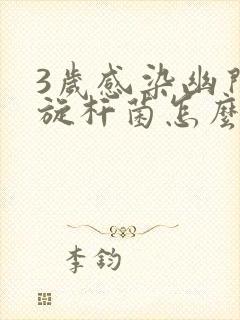 3歲感染幽門
旋杆菌怎麼
李鈞